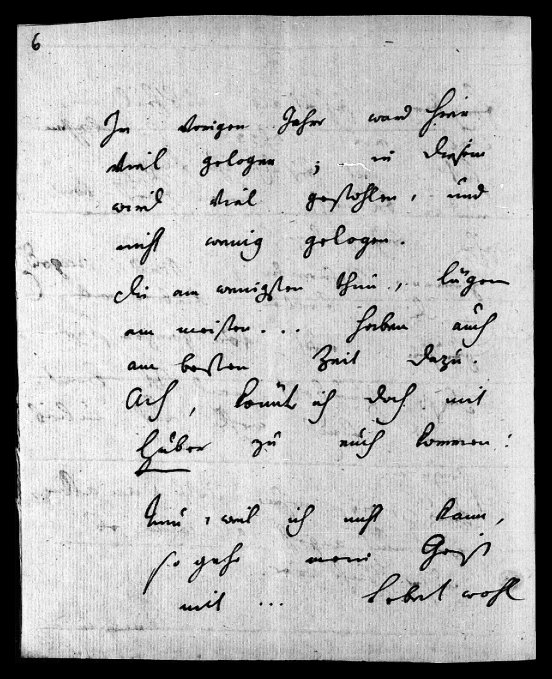 6
Im vorigen Jahr ward hier
viel gelogen ; in diesem
wird viel gestohlen, und
nicht wenig gelogen.
die am wenigsten thun, lügen
am meisten... haben auch
am besten Zeit dazu.
Ach, könnt ich doch mit
Huber zu euch kommen!
Nun, weil ich nicht kann,
so gehe mein Geist
mit ... Lebet wohl